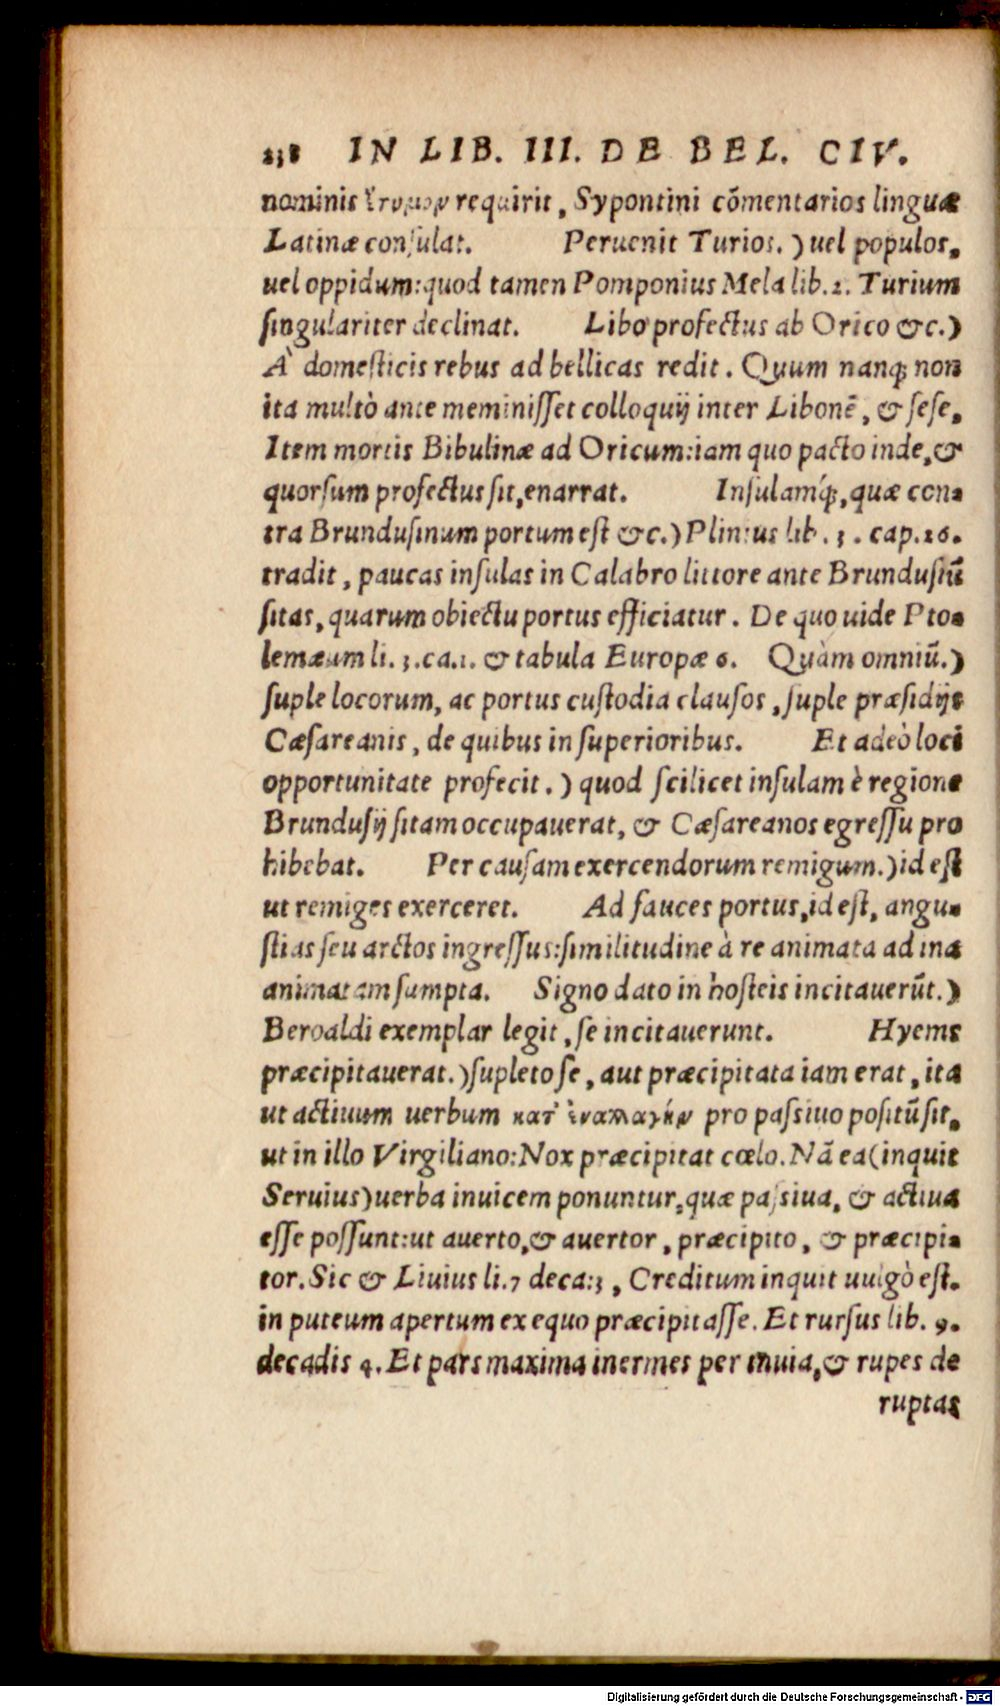 238 IN LIB. III. DE BEL. CIV.
nominis ἔτυμον requirit, Sypontini cōmentarios linguæ
Latinæ consulat. Peruenit Turios.) uel populos,
uel oppidum: quod tamen Pomponius Mela lib. 2. Turium
singulariter declinat. Libo profectus ab Orico &c.)
À domesticis rebus ad bellicas redit. Quum nanq; non
ita multò ante meminisset colloquij inter Libonē, & sese,
Item mortis Bibulinæ ad Oricum: iam quo pacto inde, &
quorsum profectus sit, enarrat. Insulamq́;, quæ con-
tra Brundusinum portum est &c.) Plinius lib. 3. cap. 26.
tradit, paucas insulas in Calabro littore ante Brundusiū
sitas, quarum obiectu portus efficiatur. De quo uide Pto-
lemæum li. 3. ca. 1. & tabula Europæ 6. Quàm omniū.)
suple locorum, ac portus custodia clausos, suple præsidijs
Cæsareanis, de quibus in superioribus. Et adeò loci
opportunitate profecit.) quod scilicet insulam è regione
Brundusij sitam occupauerat, & Cæsareanos egressu pro
hibebat. Per causam exercendorum remigum.) id est
ut remiges exerceret. Ad fauces portus, id est, angu-
stias seu arctos ingressus: similitudine à re animata ad ina
animatam sumpta. Signo dato in hosteis incitauerūt.)
Beroaldi exemplar legit, se incitauerunt. Hyems
præcipitauerat.) supleto se, aut præcipitata iam erat, ita
ut actiuum uerbum κατ' ἐναλλαγὴν pro passiuo positū sit,
ut in illo Virgiliano: Nox præcipitat cœlo. Nā ea (inquit
Seruius) uerba inuicem ponuntur, quæ passiua, & actiua
esse possunt: ut auerto, & auertor, præcipito, & præcipi-
tor. Sic & Liuius li. 7 deca: 3, Creditum inquit uulgò est.
in puteum apertum ex equo præcipitasse. Et rursus lib. 9.
decadis 4. Et pars maxima inermes per inuia, & rupes de
ruptas
Digitalisierung gefördert durch die Deutsche Forschungsgemeinschaft - DFG